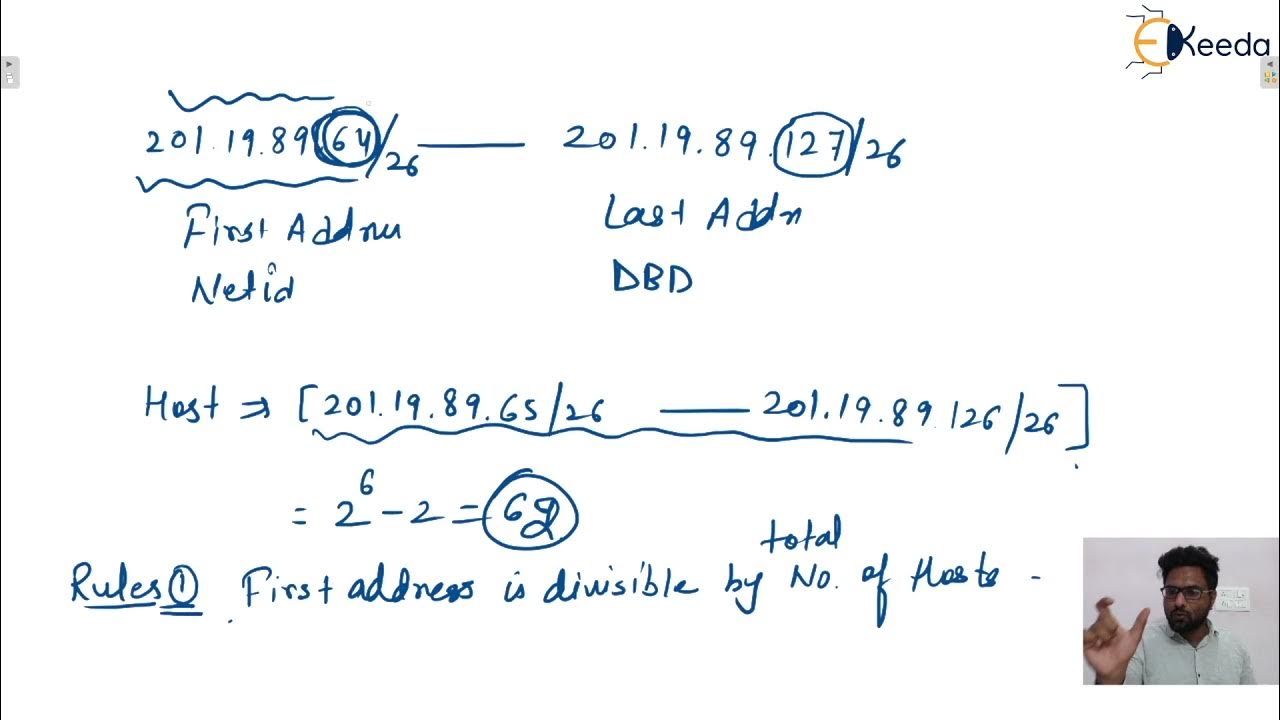 EKeeda
201.19.89.64/26 — 201.19.89.127/26
First Address Last Addr
Netid DBD
Host ⇒ [201.19.89.65/26 — 201.19.89.126/26]
= 2^6 - 2 = 62
total
Rules ① First address is divisible by No. of Hosts -